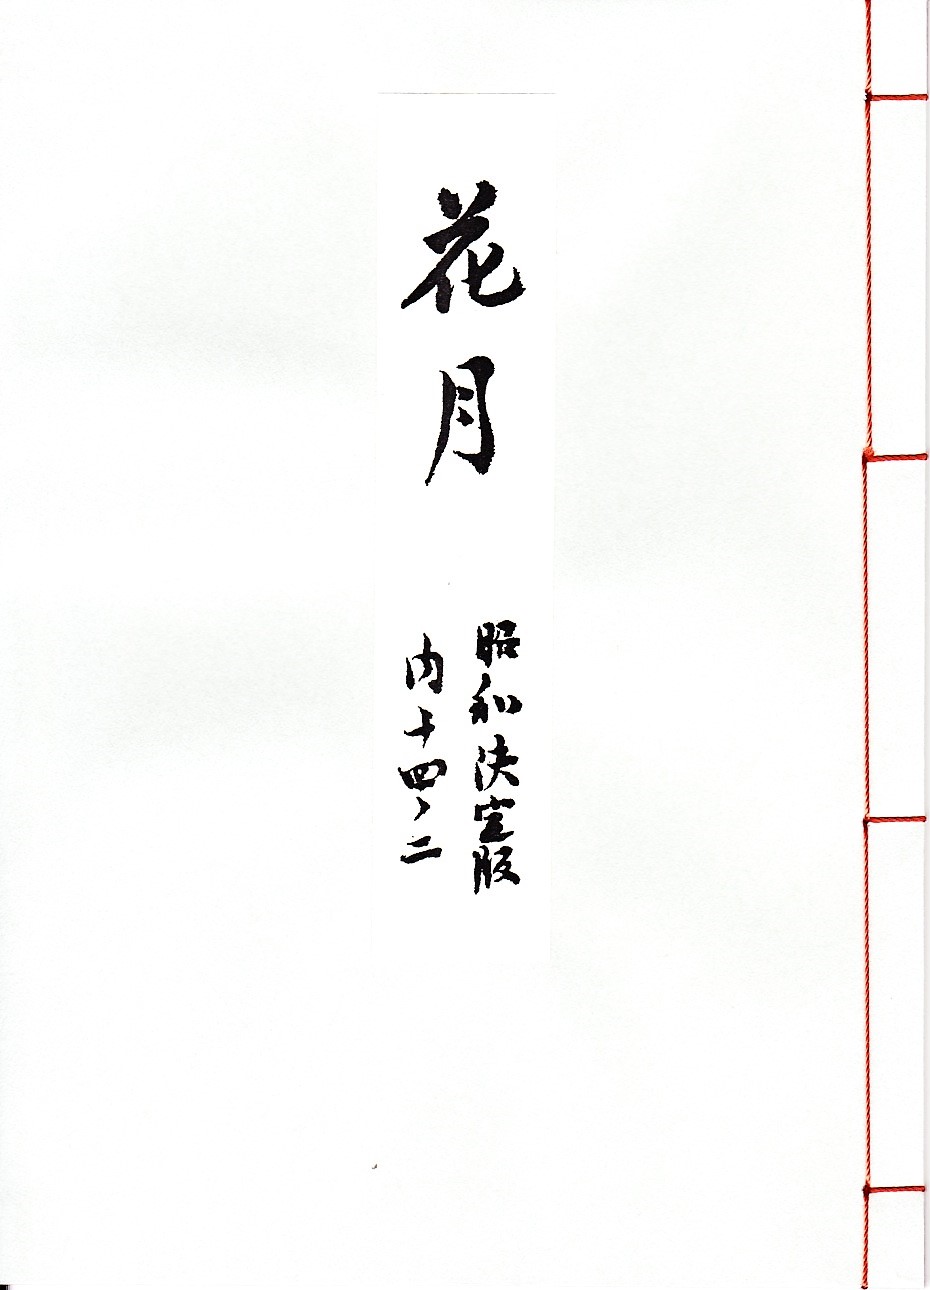 花月
昭和決定版
内十四ノ二